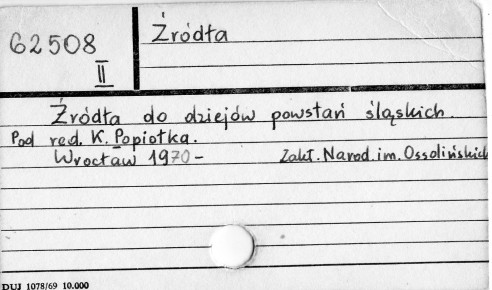 62508
II
Źródła
Źródła do dziejów powstań śląskich.
Pod red. K. Popiołka.
Wrocław 1970- Zakł. Narod. im. Ossolińskich
DUJ 1078/69 10.000